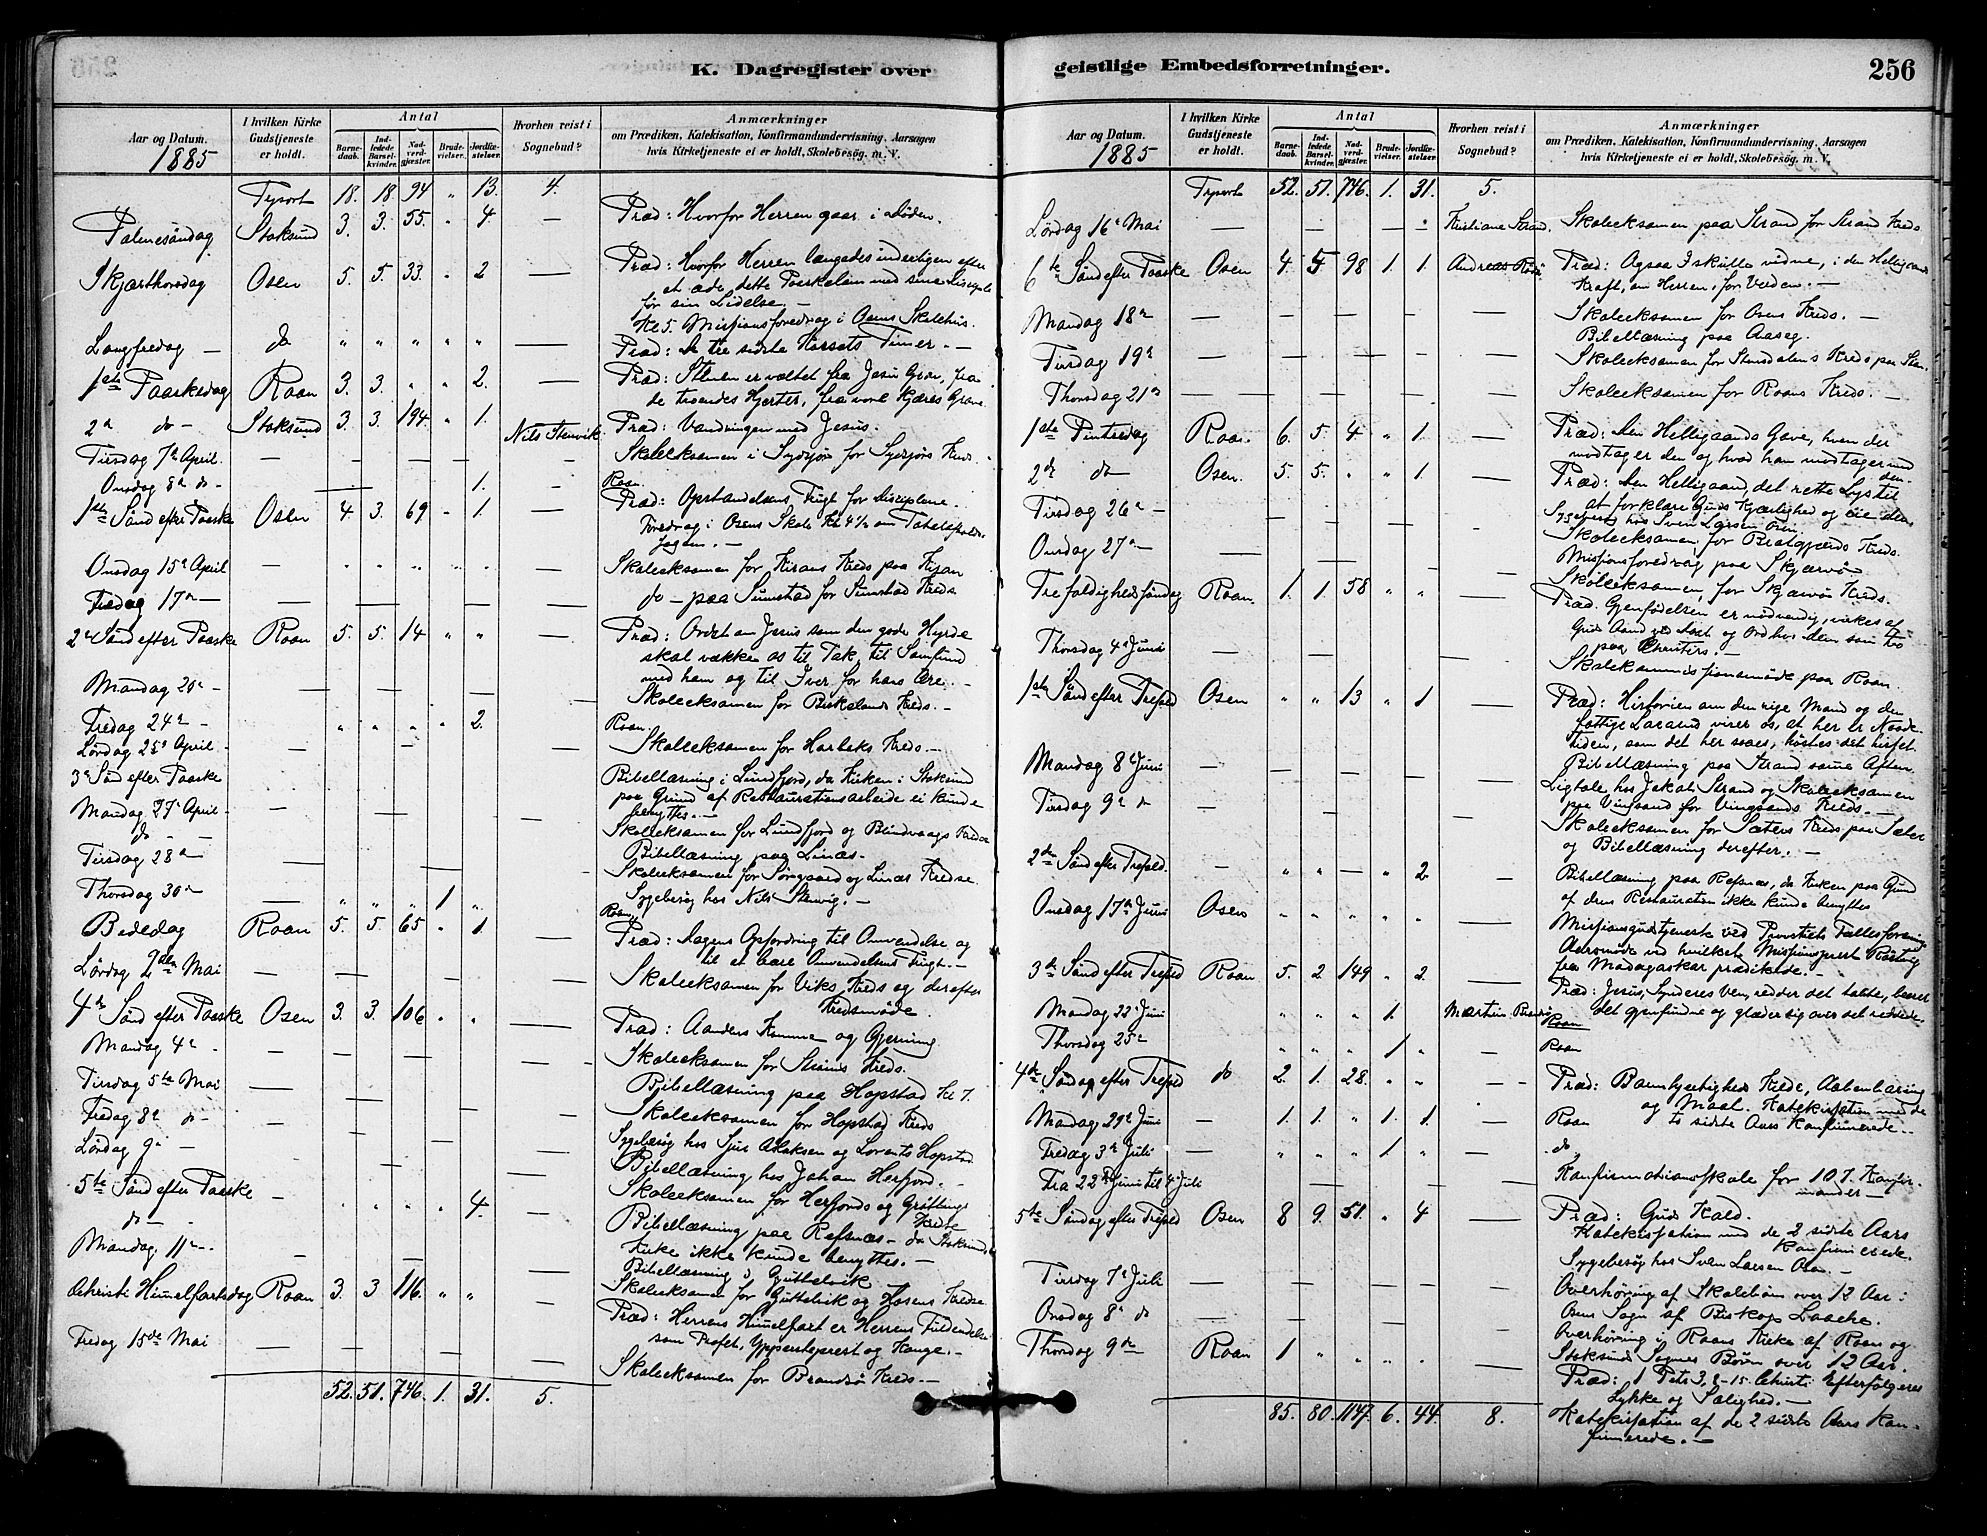 K. Dagregister over
geistlige Embedsforretninger.
256
Aar og Datum.
1885
I hvilken Kirke Gudstjeneste er holdt.
Antal
Barnedaab.
Indledede Barselkvinder.
Nadverdgjæster.
Brudevielser.
Jordfæstelser.
Hvorhen reist i Sognebud?
Anmærkninger
om Prædiken, Katekisation, Konfirmandundervisning, Aarsagen
hvis Kirketjeneste ei er holdt, Skolebesøg. m. V.
18. 18. 94 " 13. 4.
Palmesøndag Stoksund 3. 3. 55. " 4. — Præd: Hvorfor Herren gaar i Døden.
Skjærthorsdag Osen 5. 5. 33. " 2 — Præd: Hvorfor Herren længedes inderligen efter
at æde dette Paaskelam med sine Disciple
før sin Lidelse. —
Kl 5. Missionsforedrag i Osens Skolehus.
Langfredag — do " " " " " — Præd: De tre sidste Korsets Timer. —
1ste Paaskedag Roan 3. 3. " " 2. — Præd: Stenen er væltet fra Jesu Grav, fra
de troendes Hjerter, fra vore Kjæres Grave.
2n do — Stoksund 3. 3. 194. " 1. Nils Stenvik. Præd: Vandringen med Jesus.
Tirsdag 7n April. — Skoleeksamen i Sydsjør for Sydsjørs Kreds.
Onsdag 8n do — 1. Roan.
1ste Sønd efter Paaske Osen 4. 3. 69 " 1 — Præd: Opstandelsens Frugt for Disciplene.
Foredrag i Osens Skole Kl 4½ om
Onsdag 15n April — Skoleeksamen for Kirans Kreds paa Kiran
Fredag 17n — — do — paa Sumstad for Sumstad Kreds
2n Sønd efter Paaske Roan 5. 5. 14 " " — Præd: Ordet om Jesus som den gode Hyrde
skal vække os til Tak, til Samfund
med ham og til Iver for hans Ære. —
Mandag 20n — Skoleeksamen for Beskelands Kreds. —
Fredag 24n — " " " " 2. Roan
Lørdag 25n April — Skoleeksamen for Harbeks Kreds —
3n Sønd efter Paaske Bibellæsning i Lundfjord, da Kirken i Stoksund
paa Grund af Restaurationsarbeide ei kunde
benyttes. —
Mandag 27n April — Skoleeksamen for Lundfjord og Blindvaags Kredse
do — Bibellæsning paa Linæs. —
Tirsdag 28n — Skoleeksamen for Sørgaard og Linæs Kredse.
Thorsdag 30n — Sygebesøg hos Nils Stenvig. —
" " " 1 " Roan
Bededag Roan 5. 5. 65 " 1. — Præd: Dagens Opfordring til Omvendelse og
til at bære Omvendelsens Frugt. —
Lørdag 2den Mai — Skoleeksamen for Viks Kreds og derefter
Kredsmøde.
4n Sønd efter Paaske Osen 3. 3. 106 " " — Præd: Aandens Komme og Gjerning
Mandag 4n — Skoleeksamen for Kreds.
Tirsdag 5te Mai — Bibellæsning paa Hopstad Kl 7.
Fredag 8n do — Skoleeksamen for Hopstad Kreds
Lørdag 9n — Sygebesøg hos og Lorents Hopstad.
Bibellæsning hos Johan Herfjord. —
5te Sønd efter Paaske — Skoleeksamen for Herfjords og Grøttings
Kredse
do — " " " " 4. — Bibellæsning paa Refsnæs — da Stoksunds
Kirke ikke kunde benyttes. —
Mandag 11n — Bibellæsning i Guttelvik
Skoleeksamen for Guttelvik og Hosens Kredse
Christi Himmelfartsdag Roan 3. 3 116. " " — Præd: Herrens Himmelfart er Herrens Fuldendelse
som Profet, Ypperstepræst og Konge. —
Fredag 15de Mai — Skoleeksamen for Brandsø Kreds. —
52. 51. 746. 1. 31. 5.
Aar og Datum.
1885
I hvilken Kirke Gudstjeneste er holdt.
Antal
Barnedaab.
Indledede Barselkvinder.
Nadverdgjæster.
Brudevielser.
Jordfæstelser.
Hvorhen reist i Sognebud?
Anmærkninger
om Prædiken, Katekisation, Konfirmandundervisning, Aarsagen
hvis Kirketjeneste ei er holdt, Skolebesøg. m. V.
52. 51. 746. 1. 31. 5.
Lørdag 16n Mai — Kristiane Strand. Skoleeksamen paa Strand for Strand Kreds.
6te Sønd efter Paaske Osen 4. 5 98 1. 1. Andreas Præd: Ogsaa I skulle vidne, i den Helligaands
Kraft, om Herren, for Verden. —
Mandag 18n — Skoleeksamen for Osens Kreds. —
Bibellæsning paa Aaseg.
Tirsdag 19n — Skoleeksamen for Stensdalens Kreds paa
Thorsdag 21n — Skoleeksamen for Roans Kreds. —
1ste Pintsedag Roan. 6. 5. 4 " 1. — Præd: Den Helligaands Gave, hvem der
modtager den og hvad han modtager med
den.
2den do Osen. 5. 5. " " 1 — Præd: Den Helligaand, det rette Lys til
at forklare Guds Kjærlighed og eie den
Tirsdag 26n — Sygebesøg hos Sven Larsen Osen.
Skoleeksamen for Kreds.
Onsdag 27n — Missionsforedrag paa Skjærvø
Skoleeksamen for Skjærvø Kreds.
Trefoldighedssøndag Roan. 1. 1. 58 " " — Præd. Gjenfødelsen er nødvendig, virkes af
Guds Aand ved Daab og Ord hos dem som tro
paa Christus. —
Thorsdag 4n Juni — Skolekommissionsmøde paa Roan.
1ste Sønd efter Trefold Osen " " 13 " 1 — Præd: Historien om den rige Mand og den
fattige Lazarus viser os, at her er Naade
tiden, som det her saaes, høstes det hisset.
Bibellæsning paa Strand samme Aften
Mandag 8n Juni — Ligtale hos Jakob Strand og Skoleeksamen
paa Vingsand for Vingsands Kreds. —
Tirsdag 9n do — Skoleeksamen for Sæters Kreds paa Sæter
og Bibellæsning derefter. —
2den Sønd efter Trefold. — " " — " 2 — Bibellæsning paa Refsnæs, da Kirken paa Grund
af dens Restauration ikke kunde benyttes
Onsdag 17n Juni Osen " " " " " — Missionsgudstjeneste ved Provstiets Fællesforenings
Aarsmøde ved hvilket Missionsprest Røstvig
fra Madagaskar prædikede. —
3de Sønd efter Trefold Roan 5. 2 149 " 2 — Præd: Jesus, Synderes Ven, redder det tabte, bærer
det gjenfundne og glæder sig over det reddede.
Mandag 22n Juni " " " 1. Martin Roan
Thorsdag 25n " " " 1 " — Roan
4de Søndag efter Trefold do 2. 1. 28. " " — Præd: Barmhjertigheds Kilde, Aabenbaring
og Maal. Katekisation med de
to sidste Aars Konfirmerede. —
Mandag 29n Juni — 1. 1. " 1. 1. — Roan
Fredag 3n Juli — " " " 1 " — do
Fra 22n Juni til 4n Juli — Konfirmationsskole for 107 Konfir-
mander —
5te Søndag efter Trefold Osen 8 9. 51. " 4 — Præd: Guds Kald.
Katekisation med de 2 sidste Aars
Konfirmerede.
Tirsdag 7n Juli — Sygebesøg hos Sven Larsen Osen —
Onsdag 8n do — Overhøring af Skolebørn over 12 Aar i
Osens Sogn af Biskop Laache.
Thorsdag 9de Roan 1 " " " " — Overhøring i Roans Kirke af Roan og
Stoksunds Sognes Børn over 12 Aar.
Præd: 1 Pets 3, 8-15. Christi Efterfølgeres
Lykke og Salighed. —
Katekisation af de 2 sidste Aars Kon-
firmerede. —
85. 80. 1147. 6. 44. 8.